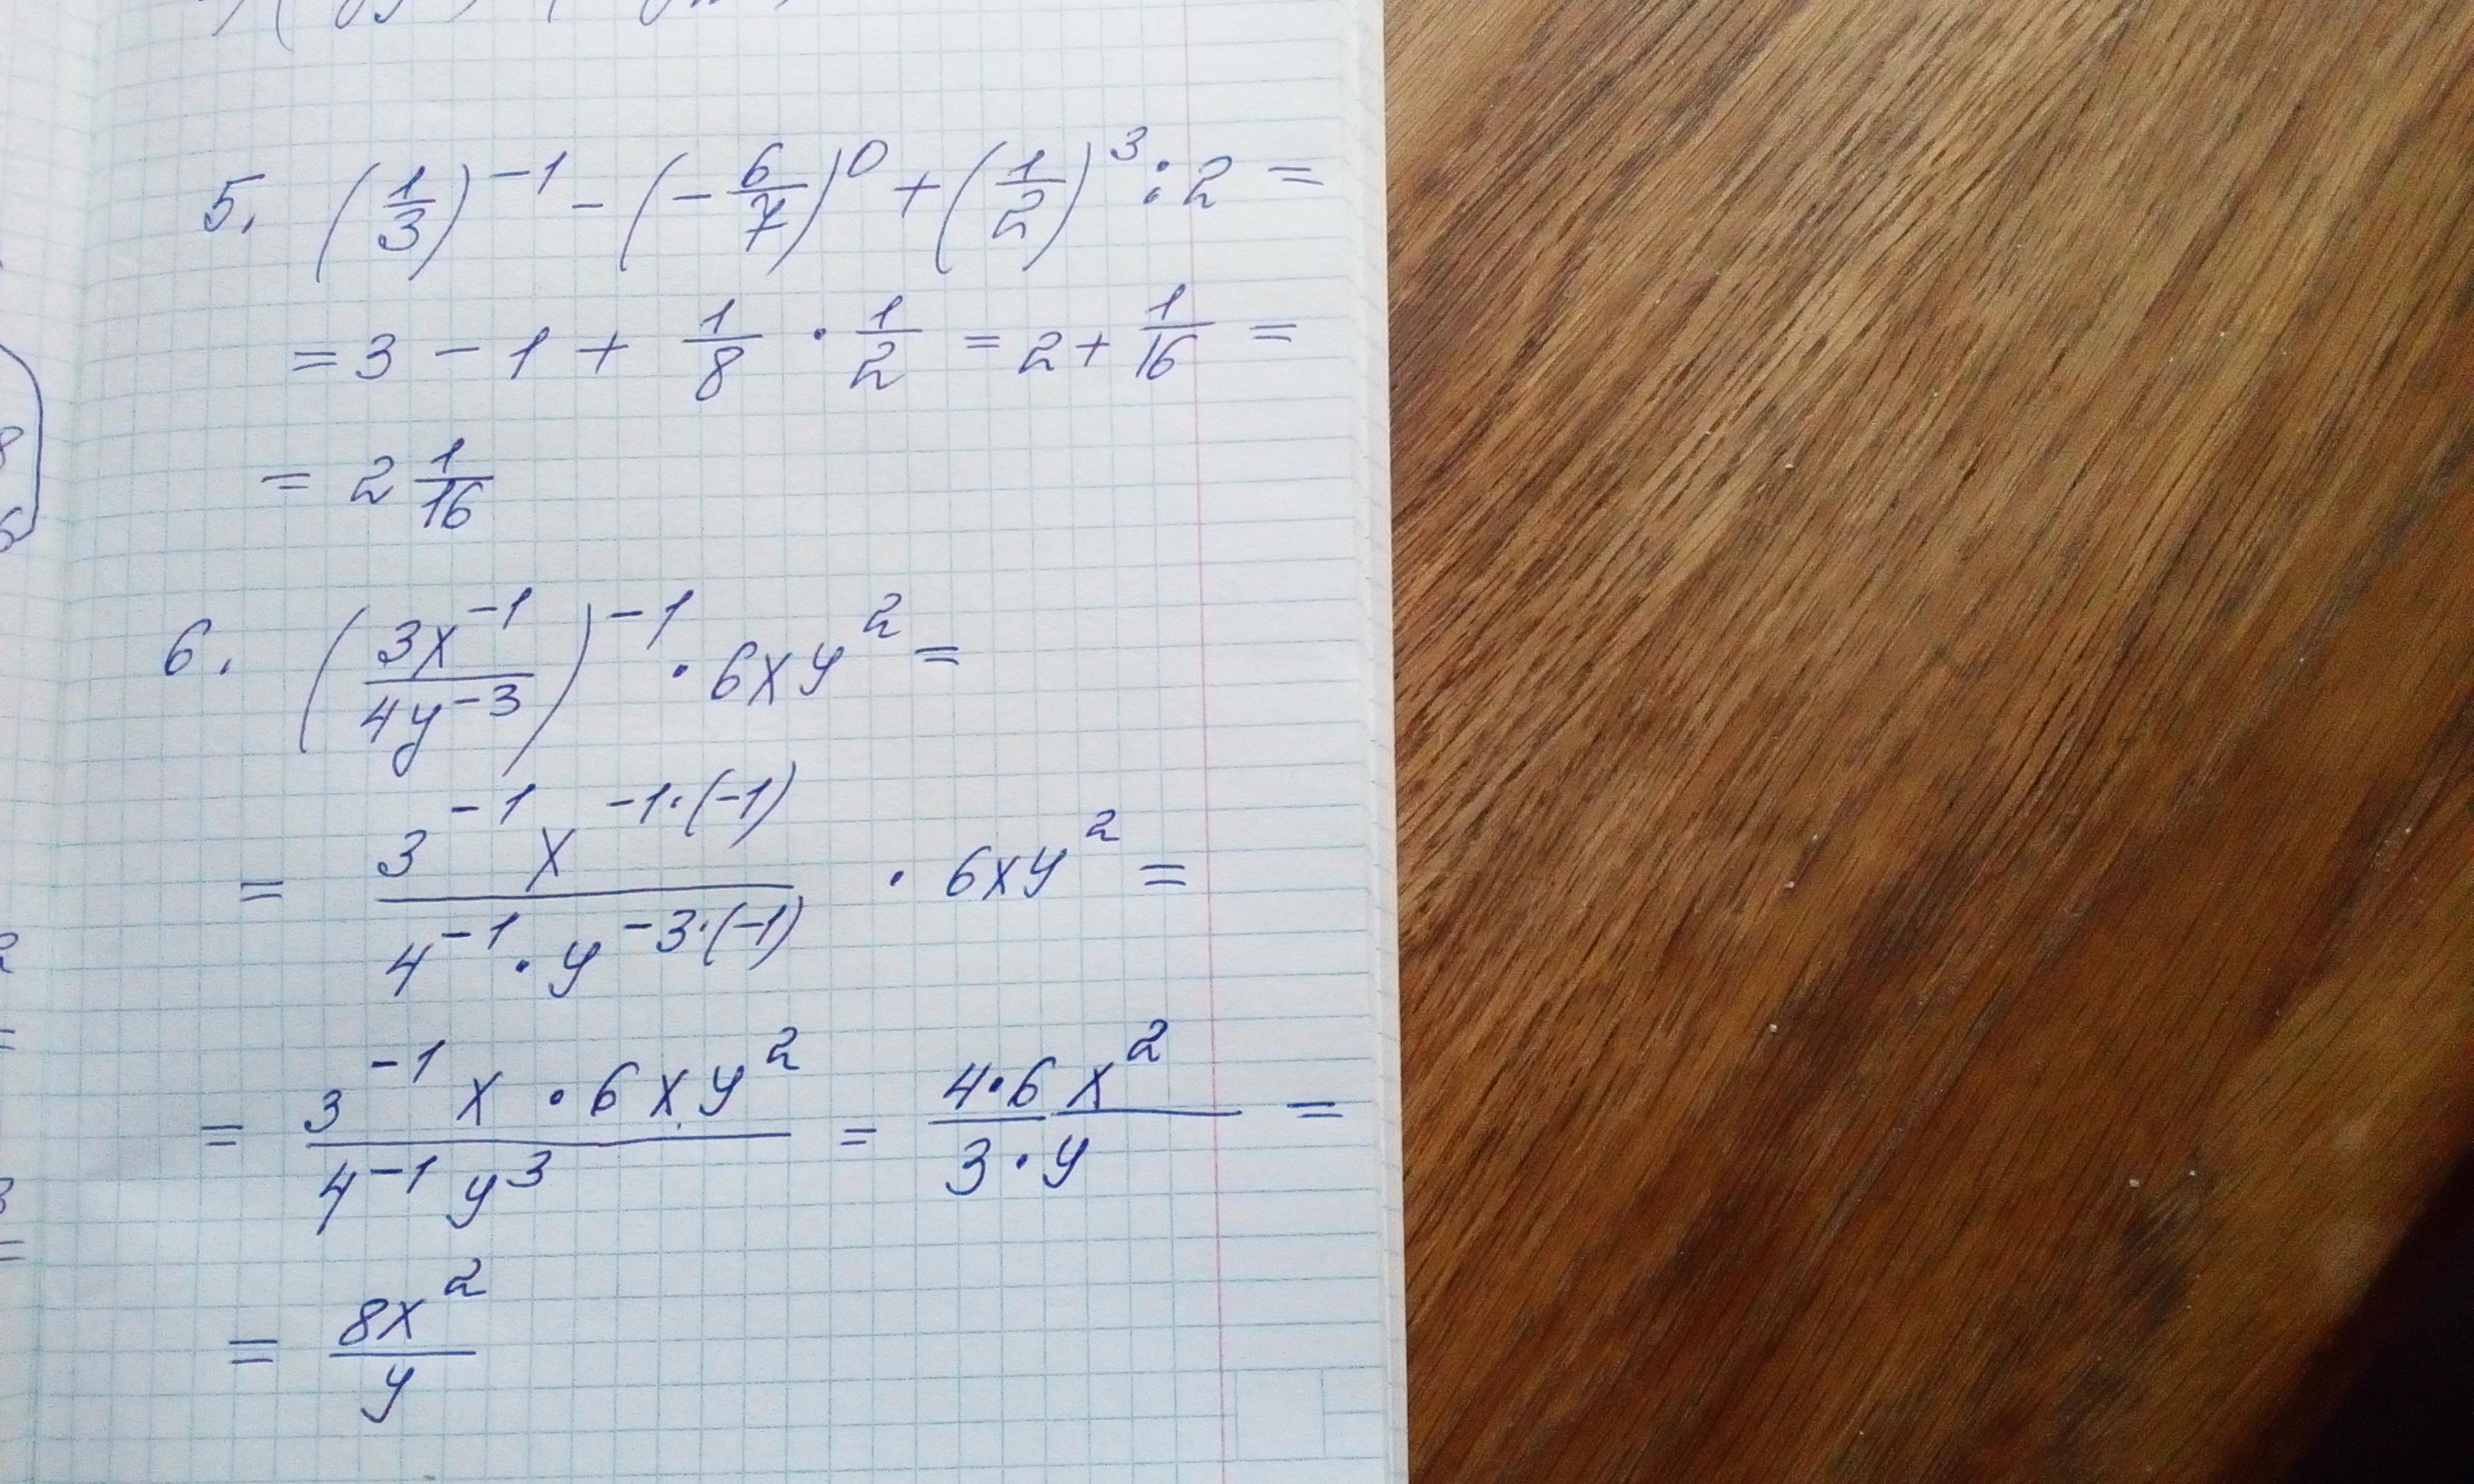 5. (1/3)^-1 - (-6/7)^0 + (1/2)^3 : 2 =
= 3 - 1 + 1/8 · 1/2 = 2 + 1/16 =
= 2 1/16
6. (3x^-1 / 4y^-3)^-1 · 6xy^2 =
= (3^-1 x^-1·(-1)) / (4^-1 · y^-3·(-1)) · 6xy^2 =
= (3^-1 x · 6xy^2) / (4^-1 y^3) = (4·6x^2) / (3·y) =
= 8x^2 / y